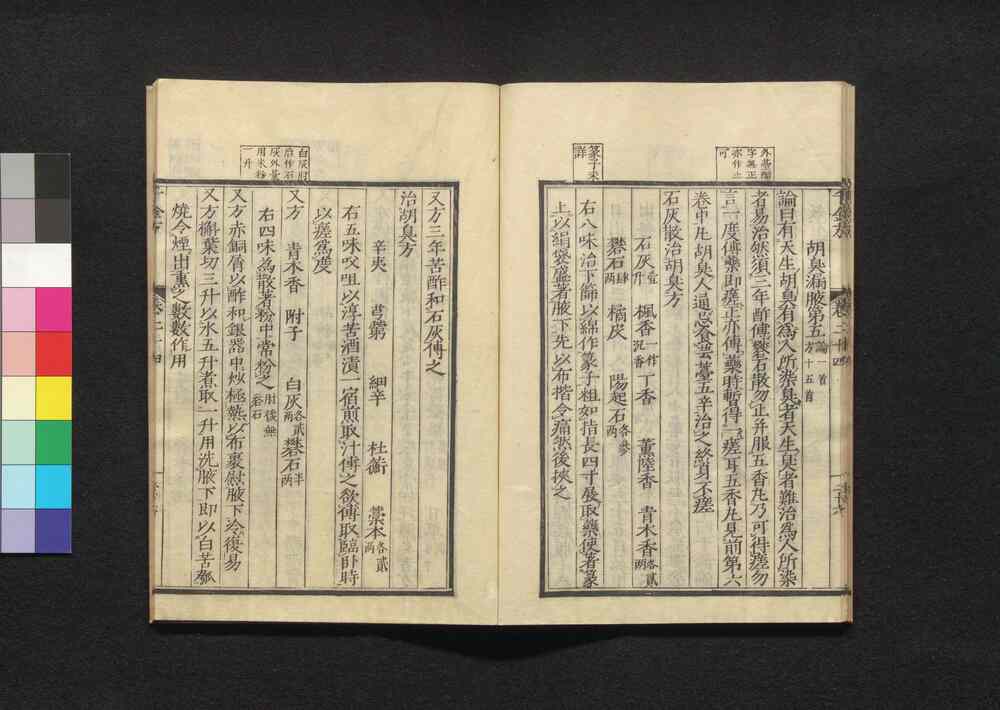 外臺勿
字無正
亦作止
可
胡臭漏腋第五論一首方十五首
論曰有天生胡臭有為人所染臭者天生臭者難治為人所染
者易治然須三年酢傅礬石散勿止并服五香丸乃可得瘥勿
言一度傅藥即瘥止亦傅藥時暫得一瘥耳五香丸見前第六
卷中凡胡臭人通忌食芸薹五辛治之終身不瘥
石灰散治胡臭方
石灰壹升 楓香一作沉香 丁香 薰陸香 青木香各貳兩
礬石肆兩 橘皮 陽起石各參兩
篆子未
詳
右八味治下篩以綿作篆子粗如指長四寸展取藥使著篆
上以絹袋盛著腋下先以布揩令痛然後挾之
千金方
卷二十四
又方三年苦酢和石灰傅之
治胡臭方
辛夷 芎藭 細辛 杜蘅 藁本各貳兩
右五味㕮咀以淳苦酒漬一宿煎取汁傅之欲傅取臨卧時
以瘥為度
白灰肘
后作石
灰外臺
用米粉
一升
又方 青木香 附子 白灰各貳兩 礬石半兩
右四味為散著粉中常粉之肘後無礬石
又方赤銅屑以酢和銀器中炒極熱以布裹熨腋下冷復易
又方槲葉切三升以水五升煮取一升用洗腋下即以白苦瓠
燒令煙出熏之數數作用
千金方
卷二十四